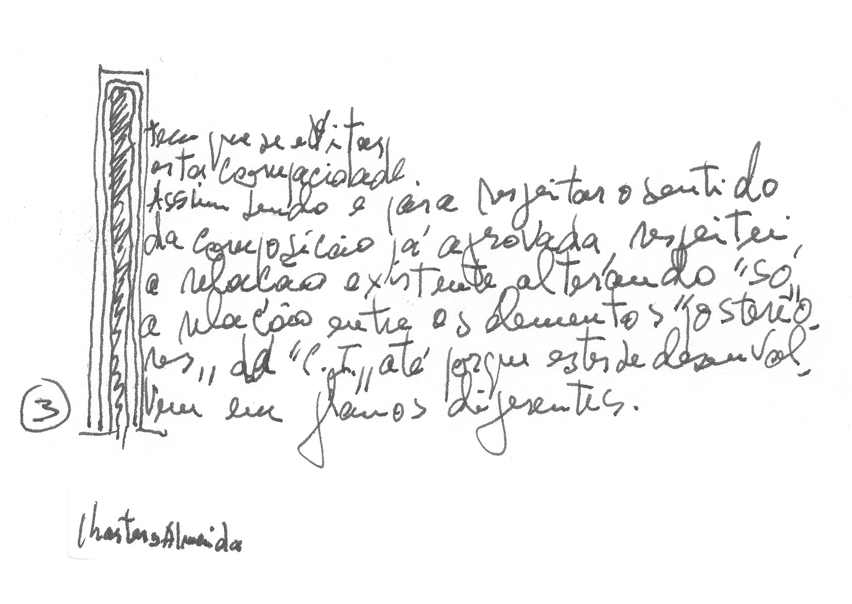 tem que se evitar
esta compacidade.
Assim sendo e para respeitar o sentido
da composição já aprovada, respeitei
a relação existente alterando "só"
a relação entre os elementos "posterio-
res" da "C.T." até porque estes se desenvol-
vem em planos diferentes.
3
Almeida